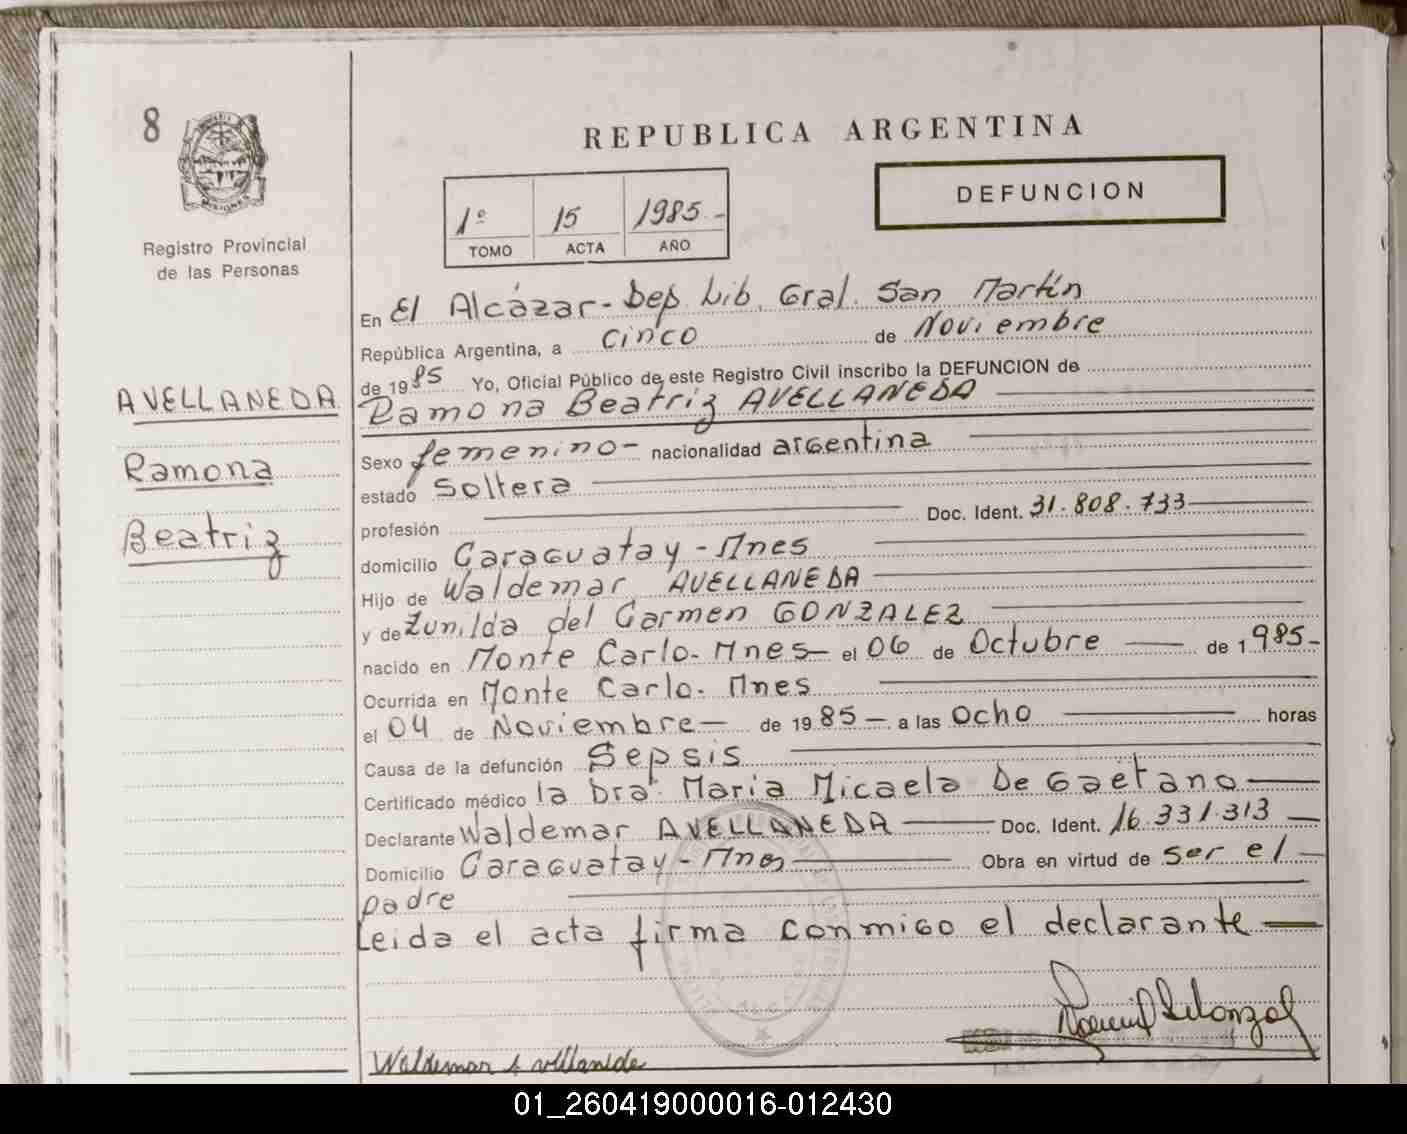 8
REPUBLICA ARGENTINA
DEFUNCION
1º 15 1985-
TOMO ACTA AÑO
MISIONES
Registro Provincial
de las Personas
En El Alcázar- Dep. Lib. Gral. San Martín
República Argentina, a cinco de Noviembre
de 1985 Yo, Oficial Público de este Registro Civil inscribo la DEFUNCION de
AVELLANEDA
Ramona
Beatriz
Ramona Beatriz AVELLANEDA
Sexo femenino- nacionalidad argentina
estado Soltera
profesión Doc. Ident. 31.808.733
domicilio Caraguatay-Mnes
Hijo de Waldemar AVELLANEDA
y de Zunilda del Carmen GONZALEZ
nacido en Monte Carlo-Mnes- el 06 de Octubre de 1985-
Ocurrida en Monte Carlo. Mnes
el 04 de Noviembre- de 1985- a las Ocho horas
Causa de la defunción Sepsis
Certificado médico la Dra. Maria Micaela De Gaetano
Declarante Waldemar AVELLANEDA Doc. Ident. 16.331.313
Domicilio Caraguatay-Mnes Obra en virtud de ser el
padre
Leida el acta firma conmigo el declarante
Waldemar Avellaneda
01_260419000016-012430